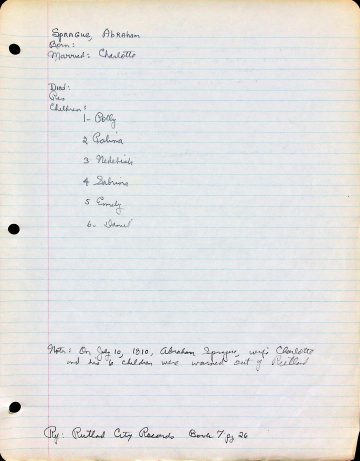 Sprague, Abraham
Born:
Married: Charlotte
Died:
Res
Children:
1- Polly
2 Palina
3 Hedebiah
4 Sabrina
5 Emely
6- Daniel
Note: On July 10, 1810, Abraham Sprague, wife Charlotte
and his 6 children were warned out of Rutland
Ref: Rutland City Records Book 7 pg 26